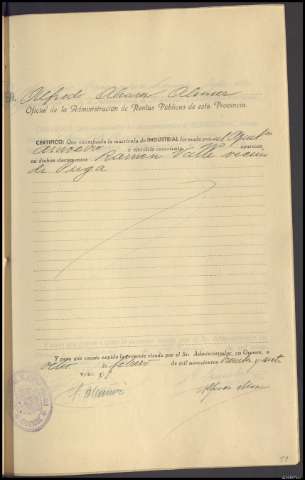 D. Alfredo
Oficial de la Administración de Rentas Públicas de esta Provincia.
CERTIFICO: Que examinada la matrícula de INDUSTRIAL formada para el Ayunt.º
y ejercicio corriente, aparece,
en dichos documentos Ramón Valle vecino
de Puga
Y para que conste expido la presente visada por el Sr. Administrador, en Orense, a
ocho de febrero de mil novecientos treinta y siete
V.º B.º